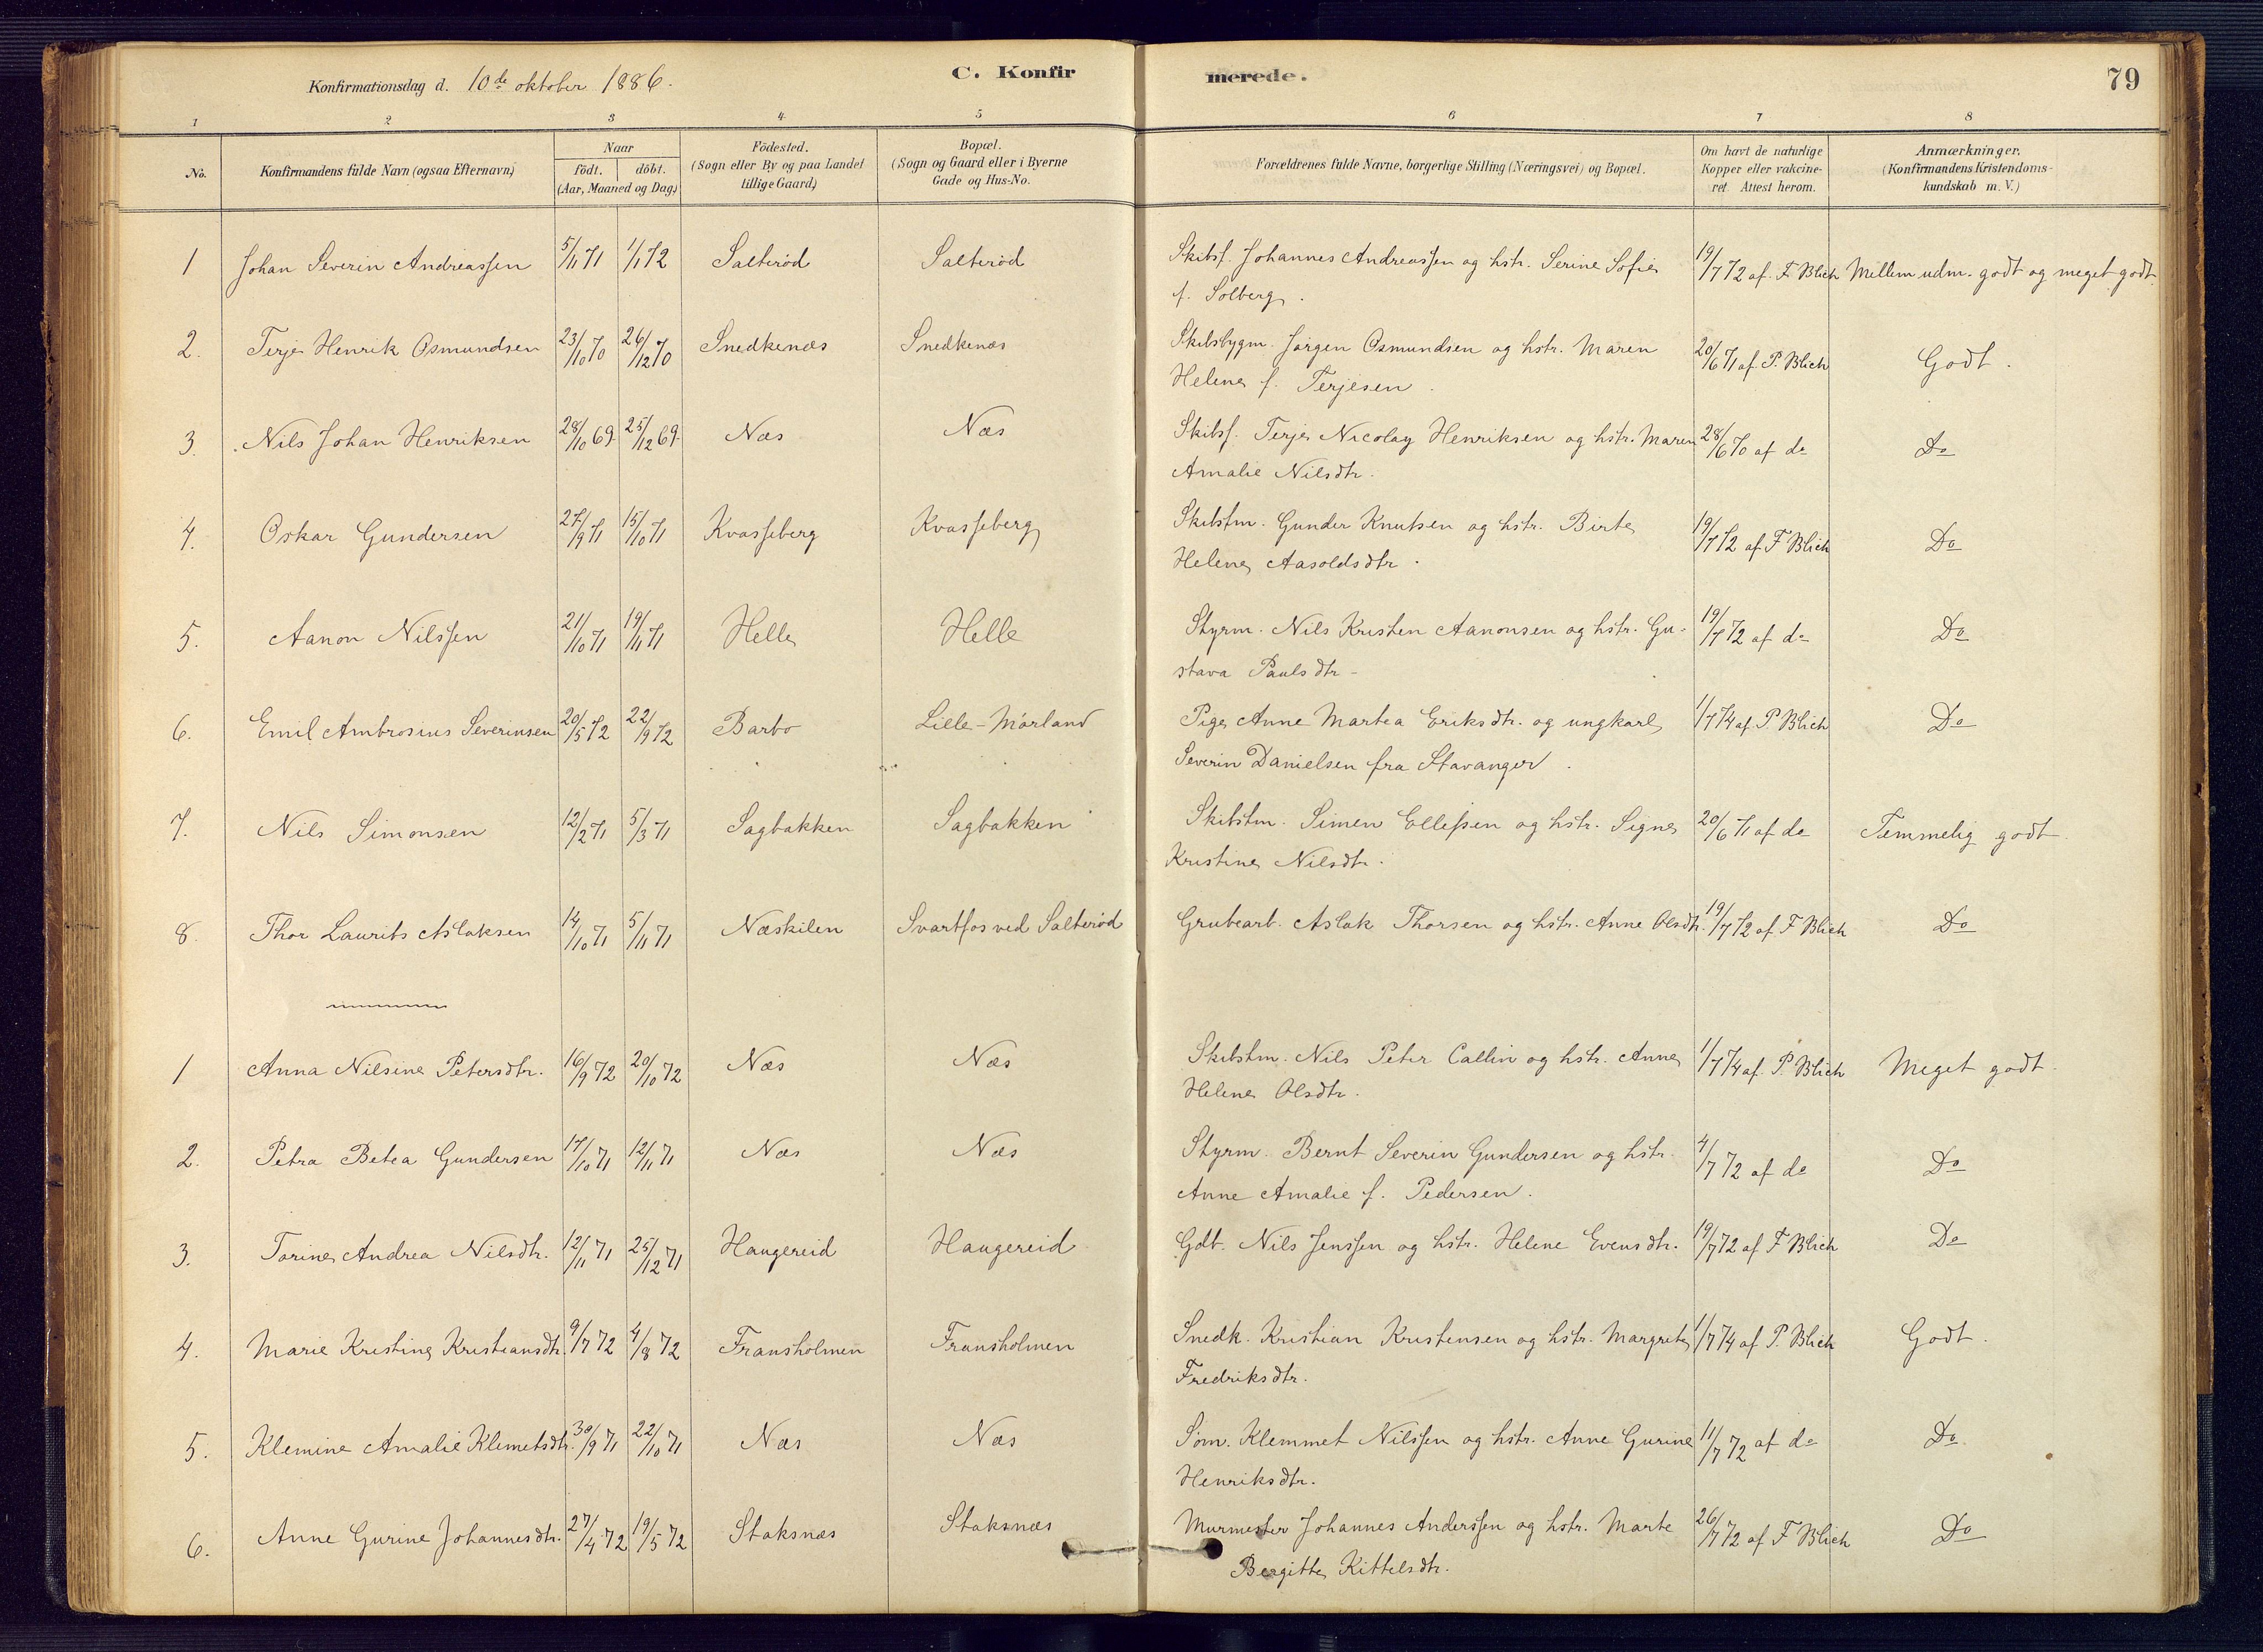 Konfirmationsdag d. 10de oktober 1886. C. Konfirmerede. 79
1 2 3 4 5 6 7 8
No. Konfirmandens fulde Navn (ogsaa Efternavn) Naar födt. döbt. (Aar, Maaned og Dag) Födested. (Sogn eller By og paa Landet tillige Gaard) Bopæl. (Sogn og Gaard eller i Byerne Gade og Hus-No. Forældrenes fulde Navne, borgerlige Stilling (Næringsvei) og Bopæl. Om havt de naturlige Kopper eller vakcineret. Attest herom. Anmærkninger. (Konfirmandens Kristendomskundskab m. V.)
1 Johan Severin Andreassen 5/11 71 1/1 72 Salterød Salterød Skibsf. Johannes Andreassen og hstr. Serine Sofie 19/7 72 af F. Blich Mellem udm. godt og meget godt
f. Solberg.
2. Terje Henrik Osmundsen 23/10 70 26/12 70 Snedkenæs Snedkenæs Skibsbygm. Jørgen Osmundsen og hstr. Maren 20/6 71 af P. Blich Godt.
Helene f. Terjesen.
3. Nils Johan Henriksen 28/10 69 25/12 69 Næs Næs Skibsf. Terje Nicolay Henriksen og hstr. Maren 28/6 70 af do Do
Amalie Nilsdtr.
4. Oskar Gundersen 27/9 71 15/10 71 Kvasseberg Kvasseberg Skibstm. Gunder Knutsen og hstr. Birte 19/7 72 af F Blich Do
Helene Aasoldsdtr.
5. Aanon Nilssen 21/10 71 19/11 71 Helle Helle Styrm. Nils Kristen Aanonsen og hstr. Gu- 19/7 72 af do Do
stava Paulsdtr-
6. Emil Ambrosius Severinsen 20/5 72 22/9 72 Barbo Lille-Mørland Pige Anne Martea Eriksdtr. og ungkarl 1/7 74 af P. Blich Do
Severin Danielsen fra Stavanger.
7. Nils Simonsen 12/2 71 5/3 71 Sagbakken Sagbakken Skibstm. Simen Ellefsen og hstr. Signe 20/6 71 af do Temmelig godt
Kristine Nilsdtr.
8. Thor Laurits Aslaksen 14/10 71 5/11 71 Næskilen Svartfos ved Salterød Grubearb. Aslak Thorsen og hstr. Anne Olsdtr. 19/7 72 af F Blich Do
1 Anna Nilsine Petersdtr. 16/9 72 20/10 72 Næs Næs Skibstm. Nils Peter Callin og hstr. Anne 1/7 74 af P. Blich Meget godt
Helene Olsdtr.
2. Petra Betea Gundersen 17/10 71 12/11 71 Næs Næs Styrm. Bernt Severin Gundersen og hstr. 4/7 72 af do Do
Anne Amalie f. Pedersen.
3. Torine Andrea Nilsdtr. 12/11 71 25/12 71 Haugereid Haugereid Gdb. Nils Jenssen og hstr. Helene Evensdtr. 19/7 72 af F Blich Do
4. Marie Kristine Kristiansdtr. 9/7 72 4/8 72 Fransholmen Fransholmen Snedk. Kristian Kristensen og hstr. Margrete 1/7 74 af P. Blich Godt.
Fredriksdtr.
5. Klemine Amalie Klemetsdtr. 30/9 71 22/10 71 Næs Næs Søm. Klemmet Nilssen og hstr. Anne Gurine 11/7 72 af do Do
Henriksdtr.
6. Anne Gurine Johannesdtr. 27/4 72 19/5 72 Staksnæs Staksnæs Murmester Johannes Anderssen og hstr. Marte 26/7 72 af F Blich Do
Bergitte Kittelsdtr.